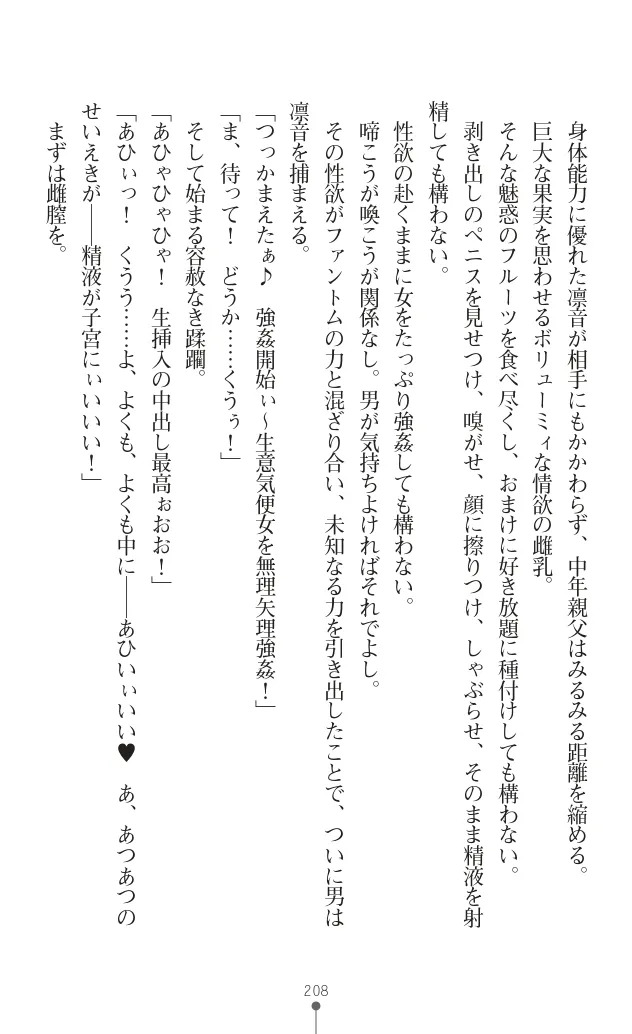 身体能力に優れた凛音が相手にもかかわらず、中年親父はみるみる距離を縮める。
巨大な果実を思わせるボリューミィな情欲の雌乳。
そんな魅惑のフルーツを食べ尽くし、おまけに好き放題に種付けしても構わない。
剥き出しのペニスを見せつけ、嗅がせ、顔に擦りつけ、しゃぶらせ、そのまま精液を射
精しても構わない。
性欲の赴くままに女をたっぷり強姦しても構わない。
啼こうが喚こうが関係なし。男が気持ちよければそれでよし。
その性欲がファントムの力と混ざり合い、未知なる力を引き出したことで、ついに男は
凛音を捕まえる。
「つっかまえたぁ♪　強姦開始ぃ～生意気便女を無理矢理強姦！」
「ま、待って！　どうか……くうぅ！」
そして始まる容赦なき蹂躙。
「あひゃひゃひゃ！　生挿入の中出し最高ぉおお！」
「あひぃっ！　くうう……よ、よくも、よくも中に――あひいぃいい♥　あ、あつあつの
せいえきが――精液が子宮にぃいいい！」
まずは雌膣を。
208